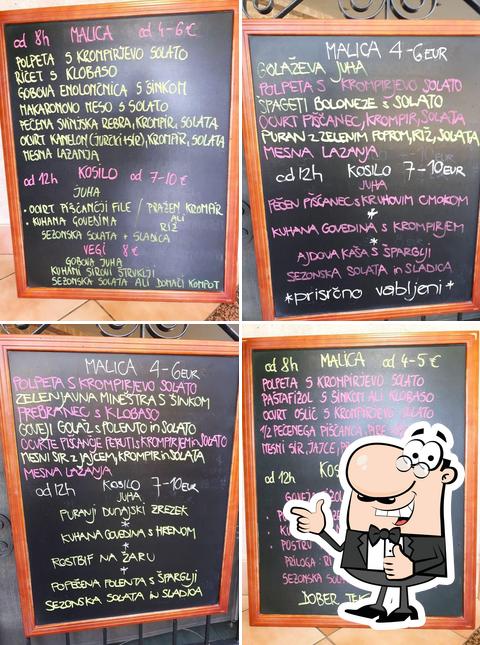 od 8h MALICA od 4-6€
POLPETA S KROMPIRJEVO SOLATO
RIČET S KLOBASO
GOBOVA ENOLONČNICA S ŠINKOM
MAKARONOVO MESO S SOLATO
PEČENA SVINJSKA REBRA, KROMPIR, SOLATA
OCVRT KANELON (ŠUNKA, SIR), KROMPIR, SOLATA
MESNA LAZANJA
od 12h KOSILO od 7-10€
JUHA
• OCVRT PIŠČANČJI FILE / PRAŽEN KROMPIR
• KUHANA GOVEDINA ALI
RIŽ
SEZONSKA SOLATA + SLADICA
VEGI 8€
GOBOVA JUHA
KUHANI SIROVI ŠTRUKLJI
SEZONSKA SOLATA ALI DOMAČI KOMPOT
MALICA 4-6EUR
GOLAŽEVA JUHA
POLPETA S KROMPIRJEVO SOLATO
ŠPAGETI BOLONEZE S SOLATO
OCVRT PIŠČANEC, KROMPIR, SOLATA
PURAN Z ZELENIM POPROM, RIŽ, SOLATA
MESNA LAZANJA
od 12h KOSILO 7-10EUR
JUHA
PEČEN PIŠČANEC S KRUHOVIM CMOKOM
*
KUHANA GOVEDINA S KROMPIRJEM
*
AJDOVA KAŠA S ŠPARGLJI
SEZONSKA SOLATA in SLADICA
*prisrčno vabljeni*
MALICA 4-6EUR
POLPETA S KROMPIRJEVO SOLATO
ZELENJAVNA MINEŠTRA S ŠINKOM
PREBRANEC S KLOBASO
GOVEJI GOLAŽ S POLENTO in SOLATO
OCVRTE PIŠČANČJE PERUTI S KROMPIRJEM in SOLATO
MESNI SIR Z JAJCEM, KROMPIR in SOLATA
MESNA LAZANJA
od 12h KOSILO 7-10EUR
JUHA
PURANJI DUNAJSKI ZREZEK
*
KUHANA GOVEDINA S HRENOM
+
ROSTBIF NA ŽARU
+
POPEČENA POLENTA S ŠPARGLJI
SEZONSKA SOLATA in SLADICA
od 8h MALICA od 4-5€
POLPETA S KROMPIRJEVO SOLATO
PAŠTAFIŽOL S ŠINKOM ALI KLOBASO
OCVRT OSLIČ S KROMPIRJEVO SOLATO
1/2 PEČENEGA PIŠČANCA, PIRE
MESNI SIR, JAJCE,
od 12h
PRILOGA: RI
SEZONSKA
DOBER TEK